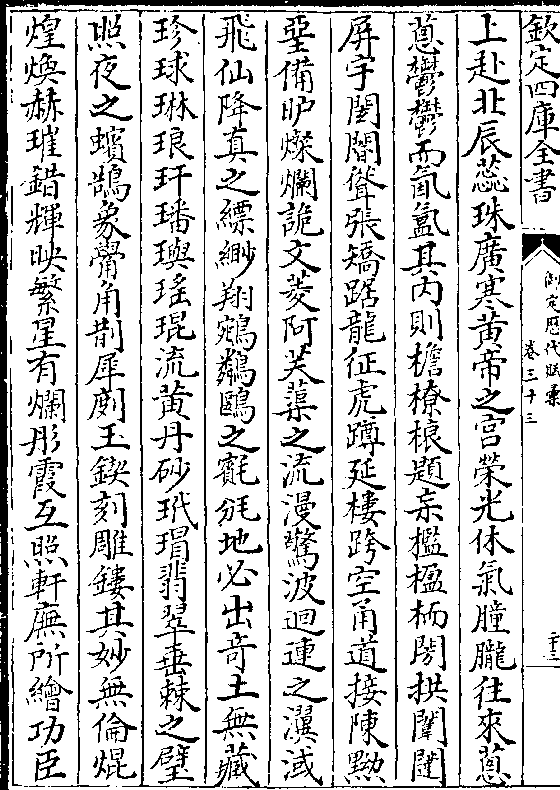 欽定四庫全書
御定歴代賦彙
卷三十三
上赴北辰蕊珠廣寒黄帝之宮榮光休氣朣朧往來蔥
蔥鬱鬱而氤氲其内則檐橑榱題宋檻楹柄閍拱闉闥
屏宇閨闇聳張矯踞龍征虎蹲延樓跨空甬道接陳黝
堊備昈燦爛詭文菱阿芙蕖之流漫驚波迴連之瀷淢
飛仙降真之縹緲翔鵷鸑鷗之寵毨地必出奇土無藏
珍球琳琅玕璠璵瑤琨流黄丹砂玳瑁翡翠垂棘之璧
照夜之蠙鵠象觷角㓸犀剫玉鍥刻雕鏤其妙無倫焜
煌煥赫璀錯輝映繁星有爛彤霞互照軒廡所繪功臣